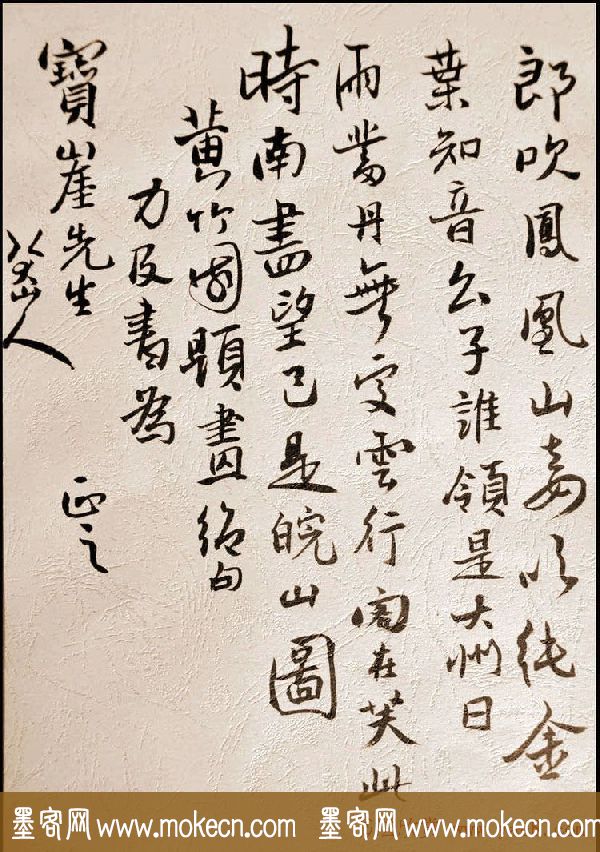 郎吹鳳凰山妾吹純金
葉知音公子誰領是大州日
雨當丹無受雲行閣在芙此
時南畫望已是皖山圖
黃竹園題畫絕句
力及書為
寶崖先生
正之
八大山人
墨客网 www.mokecn.com 墨客网 www.mokecn.com